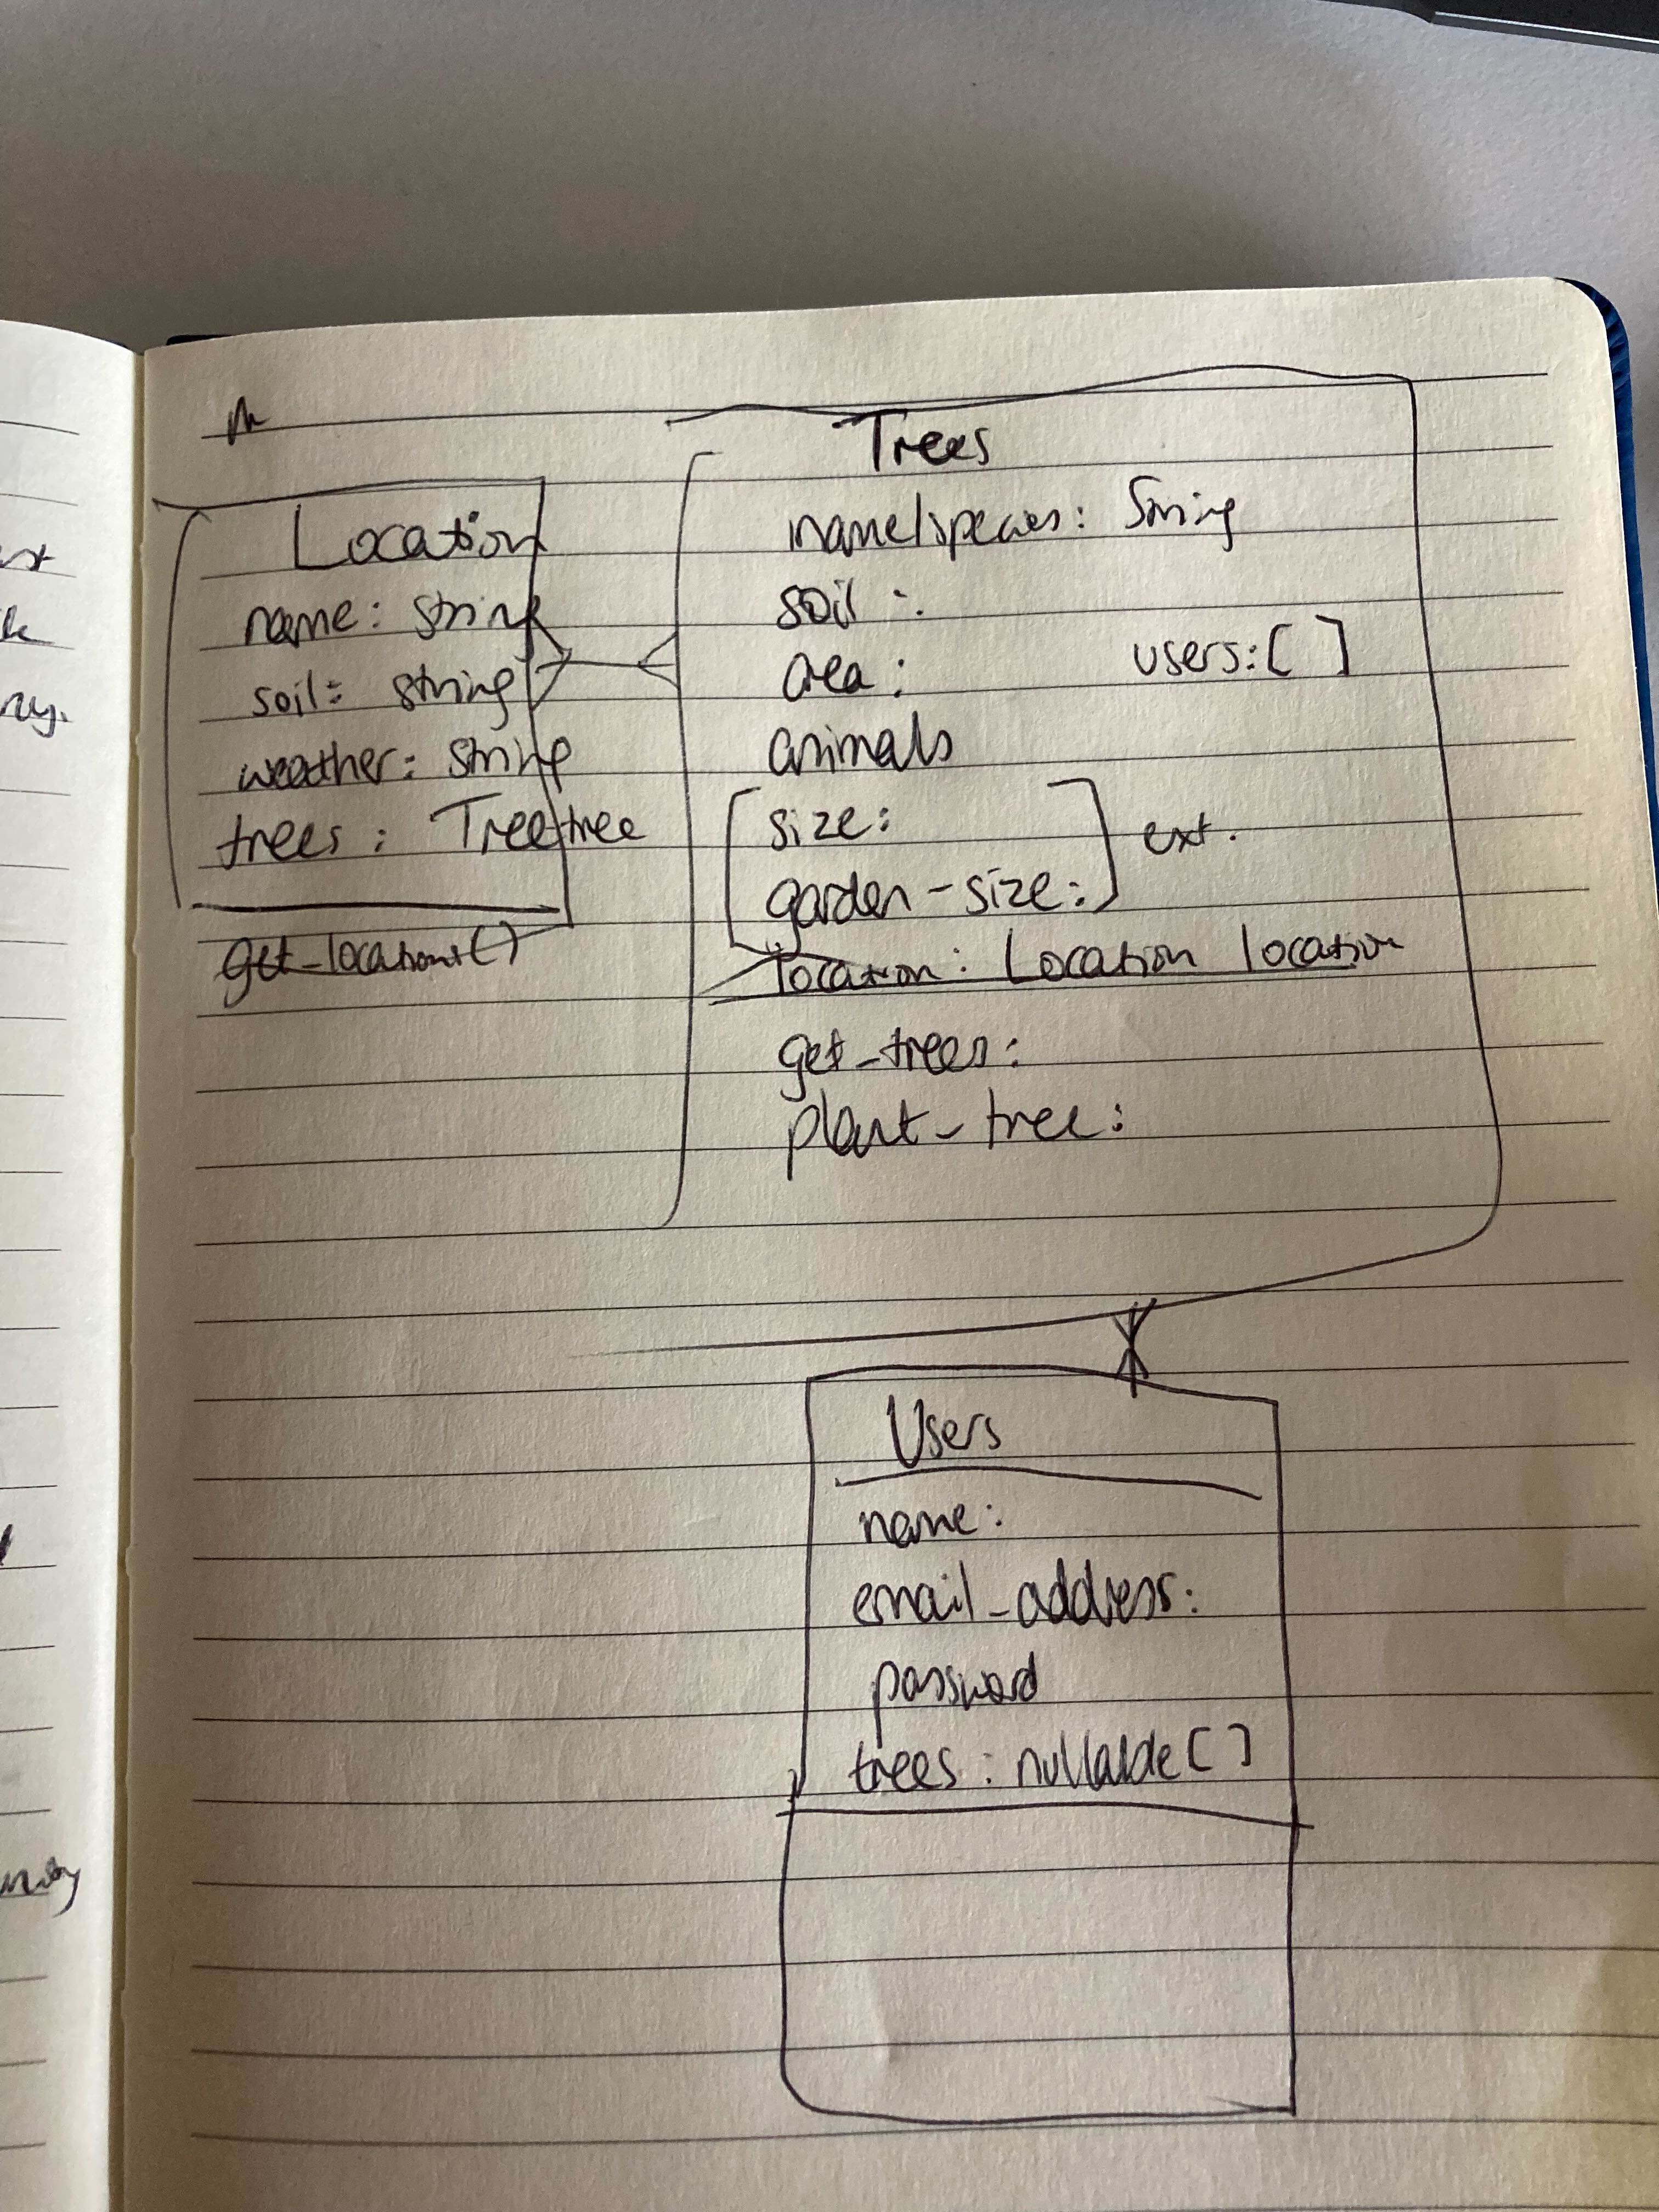 Location
name: string
soil: string
weather: string
trees: Tree tree
get_locations()
Trees
name/species: String
soil:
area:
users: [ ]
animals
size:
garden-size:
ext.
location: Location location
get_trees:
plant_tree:
Users
name:
email_address:
password
trees: nullable [ ]